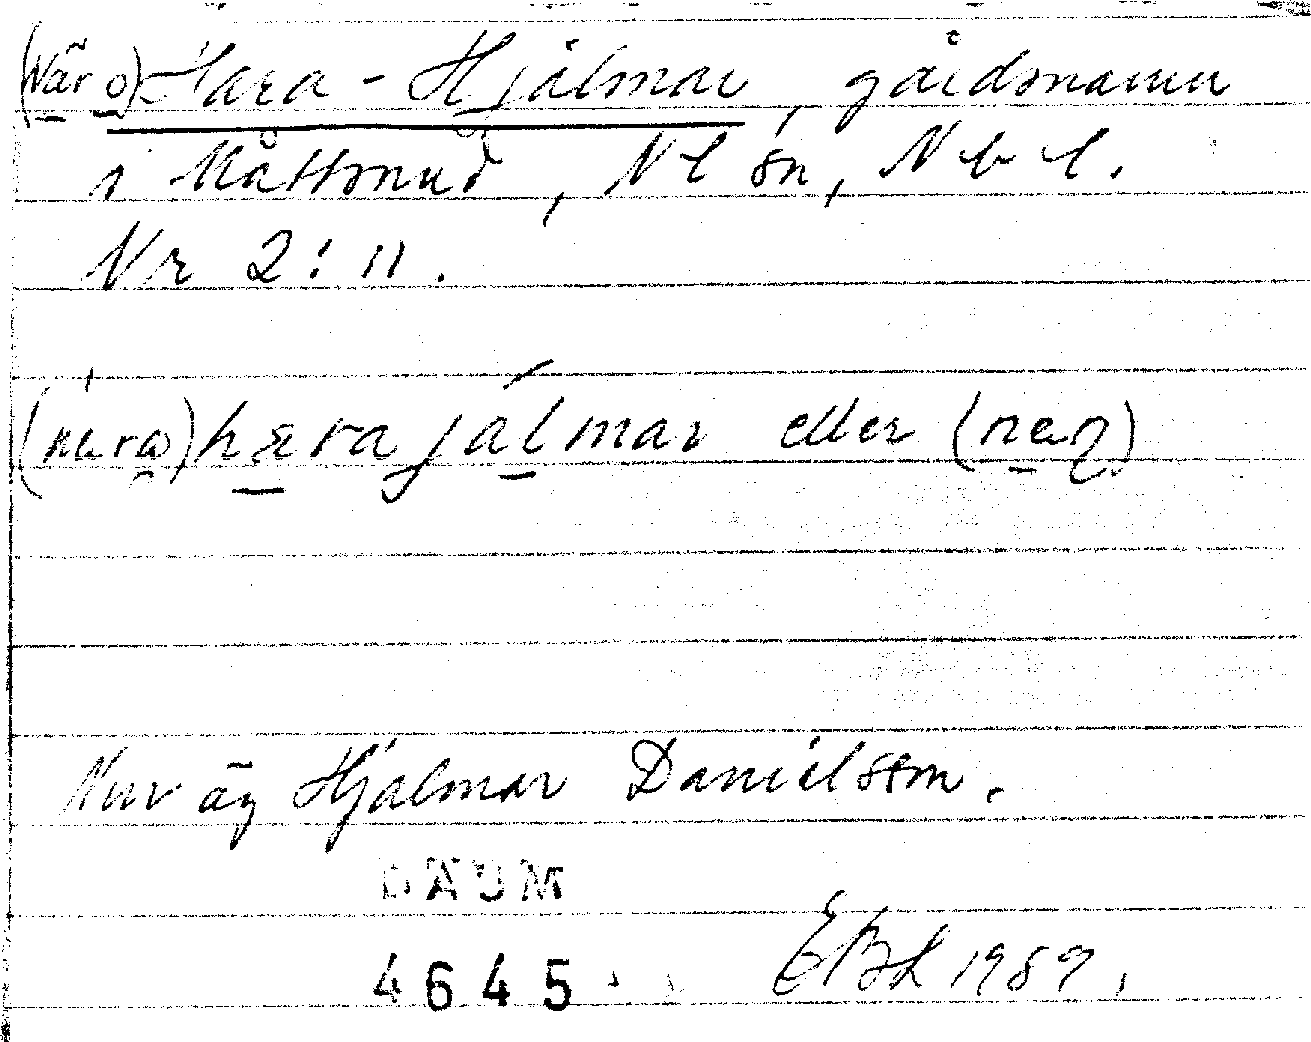 (När o) Hara-Hjalmar, gårdsnamn
i Mattsund, Nl sn, Nbl.
Nr 2:11.
(næra) hæra jalmar eller (nen)
Nuv äg Hjalmar Danielsson.
DAUM
4645 EBL 1989.